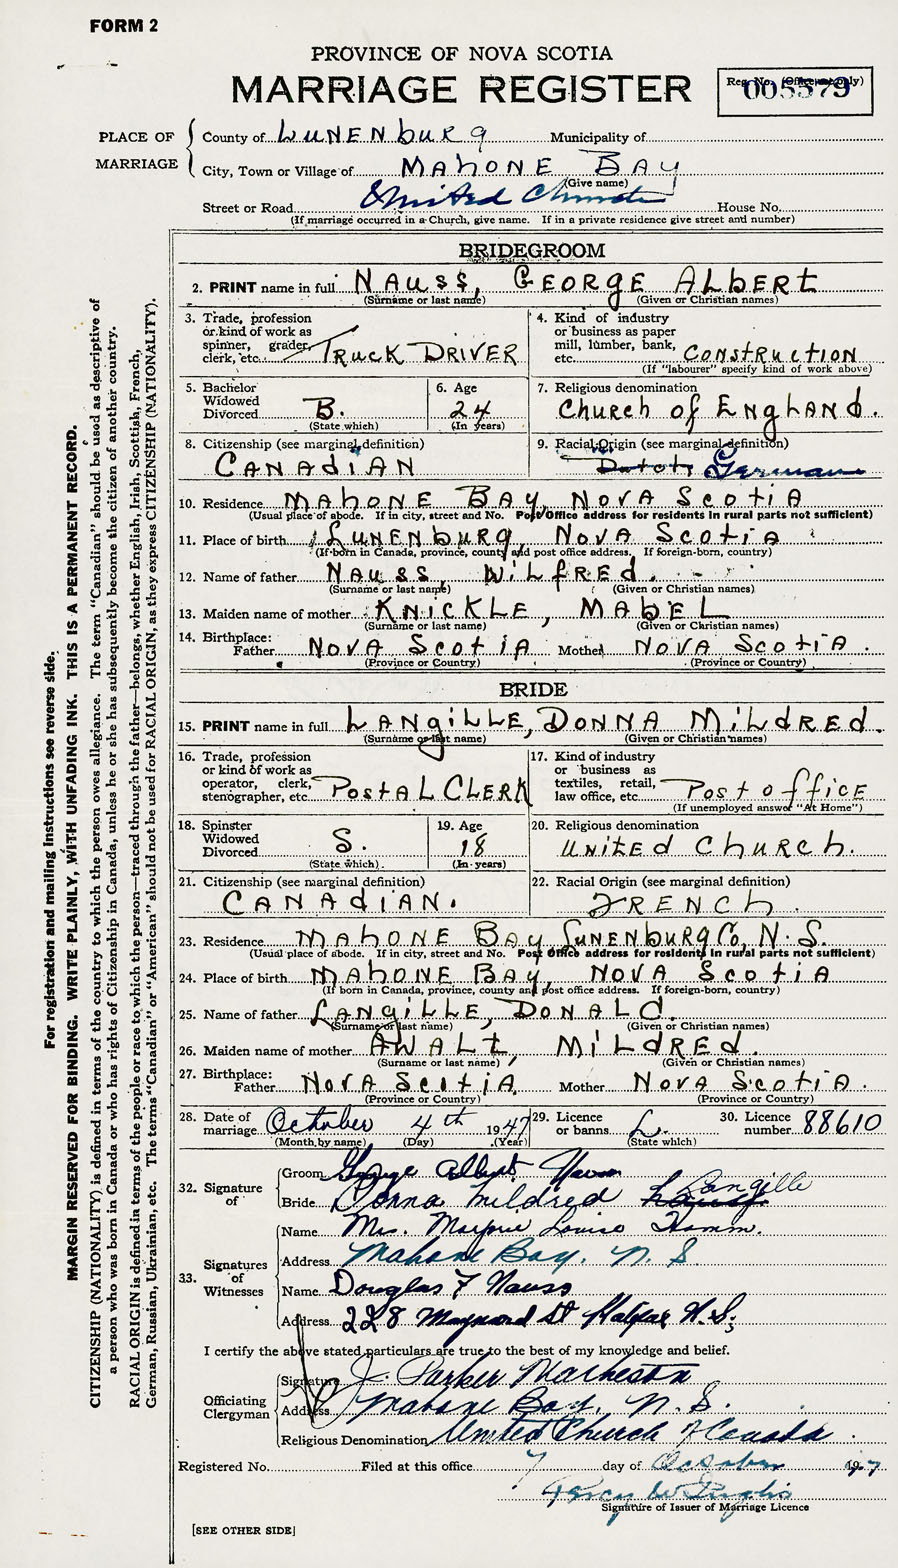 FORM 2
PROVINCE OF NOVA SCOTIA
MARRIAGE REGISTER
Reg. No. (Office use only)
005579
PLACE OF MARRIAGE
County of LUNENBURG Municipality of
City, Town or Village of MAHONE BAY
(Give name)
Street or Road United Church House No.
(If marriage occurred in a Church, give name. If in a private residence give street and number)
BRIDEGROOM
2. PRINT name in full NAUSS, GEORGE ALBERT
(Surname or last name) (Given or Christian names)
3. Trade, profession or kind of work as spinner, grader, clerk, etc. TRUCK DRIVER
4. Kind of industry or business as paper mill, lumber, bank, etc. CONSTRUCTION
(If "labourer" specify kind of work above)
5. Bachelor Widowed Divorced B.
(State which)
6. Age 24
(In years)
7. Religious denomination CHURCH OF ENGLAND.
8. Citizenship (see marginal definition) CANADIAN
9. Racial Origin (see marginal definition) Dutch German
10. Residence MAHONE BAY, NOVA SCOTIA
(Usual place of abode. If in city, street and No. Post Office address for residents in rural parts not sufficient)
11. Place of birth LUNENBURG, NOVA SCOTIA
(If born in Canada, province, county and post office address. If foreign-born, country)
12. Name of father NAUSS, WILFRED.
(Surname or last name) (Given or Christian names)
13. Maiden name of mother KNICKLE, MABEL
(Surname or last name) (Given or Christian names)
14. Birthplace: Father NOVA SCOTIA Mother NOVA SCOTIA.
(Province or Country) (Province or Country)
BRIDE
15. PRINT name in full LANGILLE, DONNA MILDRED.
(Surname or last name) (Given or Christian names)
16. Trade, profession or kind of work as operator, clerk, stenographer, etc. POSTAL CLERK
17. Kind of industry or business as textiles, retail, law office, etc. POST OFFICE
(If unemployed answer "At Home")
18. Spinster Widowed Divorced S.
(State which)
19. Age 18
(In years)
20. Religious denomination UNITED CHURCH.
21. Citizenship (see marginal definition) CANADIAN.
22. Racial Origin (see marginal definition) FRENCH.
23. Residence MAHONE BAY, LUNENBURG CO, N.S.
(Usual place of abode. If in city, street and No. Post Office address for residents in rural parts not sufficient)
24. Place of birth MAHONE BAY, NOVA SCOTIA
(If born in Canada, province, county and post office address. If foreign-born, country)
25. Name of father LANGILLE, DONALD.
(Surname or last name) (Given or Christian names)
26. Maiden name of mother AWALT, MILDRED.
(Surname or last name) (Given or Christian names)
27. Birthplace: Father NOVA SCOTIA Mother NOVA SCOTIA.
(Province or Country) (Province or Country)
28. Date of marriage October 4th 1947
(Month, by name) (Day) (Year)
29. Licence or banns L.
(State which)
30. Licence number 88610
32. Signature of
Groom George Albert Nauss
Bride Donna Mildred Langille
33. Signatures of Witnesses
Name Mrs. Louise
Address Mahone Bay, N.S.
Name Douglas F Nauss
Address 228 Maynard St Halifax N.S;
I certify the above stated particulars are true to the best of my knowledge and belief.
Officiating Clergyman
Signature J. Parker
Address Mahone Bay, N.S.
Religious Denomination United Church of Canada.
Registered No. Filed at this office 7 day of October 1947
Signature of Issuer of Marriage Licence
[SEE OTHER SIDE]
For registration and mailing instructions see reverse side.
MARGIN RESERVED FOR BINDING. WRITE PLAINLY, WITH UNFADING INK. THIS IS A PERMANENT RECORD.
CITIZENSHIP (NATIONALITY) is defined in terms of the country to which the person owes allegiance. The term "Canadian" should be used as descriptive of
a person who was born in Canada or who has rights of Citizenship in Canada, unless he or she has subsequently become the citizen of another country.
RACIAL ORIGIN is defined in terms of the people or race to which the person—traced through the father—belongs, whether English, Irish, Scottish, French,
German, Russian, Ukrainian, etc. The terms "Canadian" or "American" should not be used for RACIAL ORIGIN, as they express CITIZENSHIP (NATIONALITY).